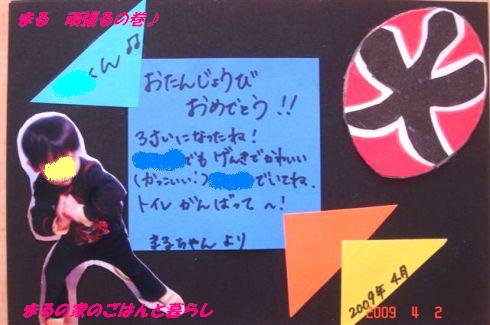 まる 頑張るの巻♪
くん
おたんじょうび
おめでとう!!
3さいになったね!
でも げんきでかわいい
(かっこいい!)でいてね.
トイレ がんばって〜!
まるちゃん より
2009年 4月
2009 4 2
まるの家のごはんと暮らし